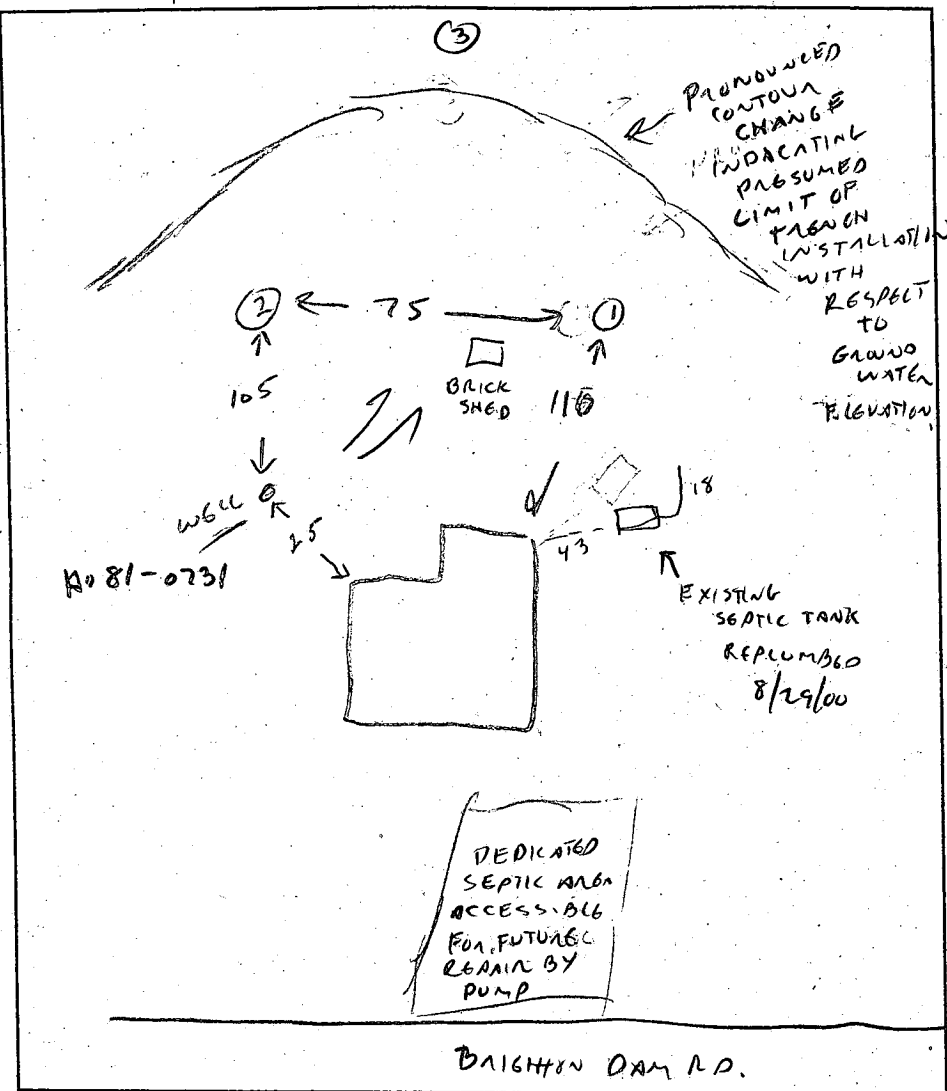 3
PRONOUNCED
CONTOUR
CHANGE
INDACATING
PRESUMED
LIMIT OF
TRENCH
INSTALLATIN
WITH
RESPECT
TO
GROUND
WATER
ELEVATION
2 75 1
BRICK
SHED
105
110
WELL
25
Ho 81-0731
43
18
EXISTING
SEPTIC TANK
REPLUMBED
8/29/00
DEDICATED
SEPTIC AREA
ACCESSIBLE
FOR FUTURE
REPAIR BY
PUMP
BRIGHTON DAM RD.